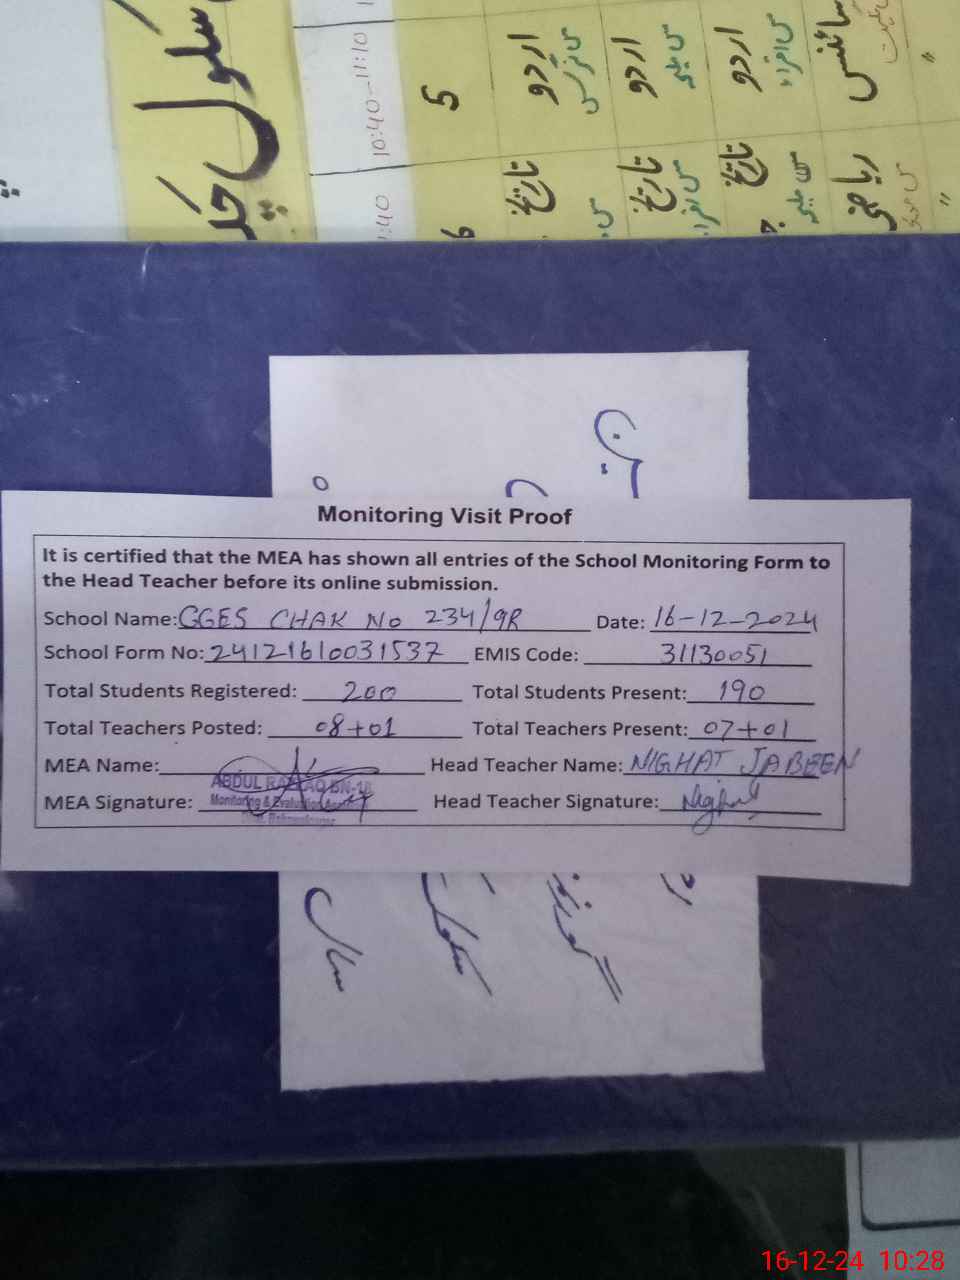 سکول
10:40-11:10
5
اردو
اردو
اردو
سائنس
1:40
6
تاریخ
تاریخ
تاریخ
ریاضی
Monitoring Visit Proof
It is certified that the MEA has shown all entries of the School Monitoring Form to
the Head Teacher before its online submission.
School Name: GGES CHAK No 234/9R Date: 16-12-2024
School Form No: 24121610031537 EMIS Code: 31130051
Total Students Registered: 200 Total Students Present: 190
Total Teachers Posted: 08+01 Total Teachers Present: 07+01
MEA Name: Head Teacher Name: NIGHAT JABEEN
ABDUL RAZZAQ BN-18
MEA Signature: Monitoring & Evaluation Head Teacher Signature:
سال
16-12-24 10:28